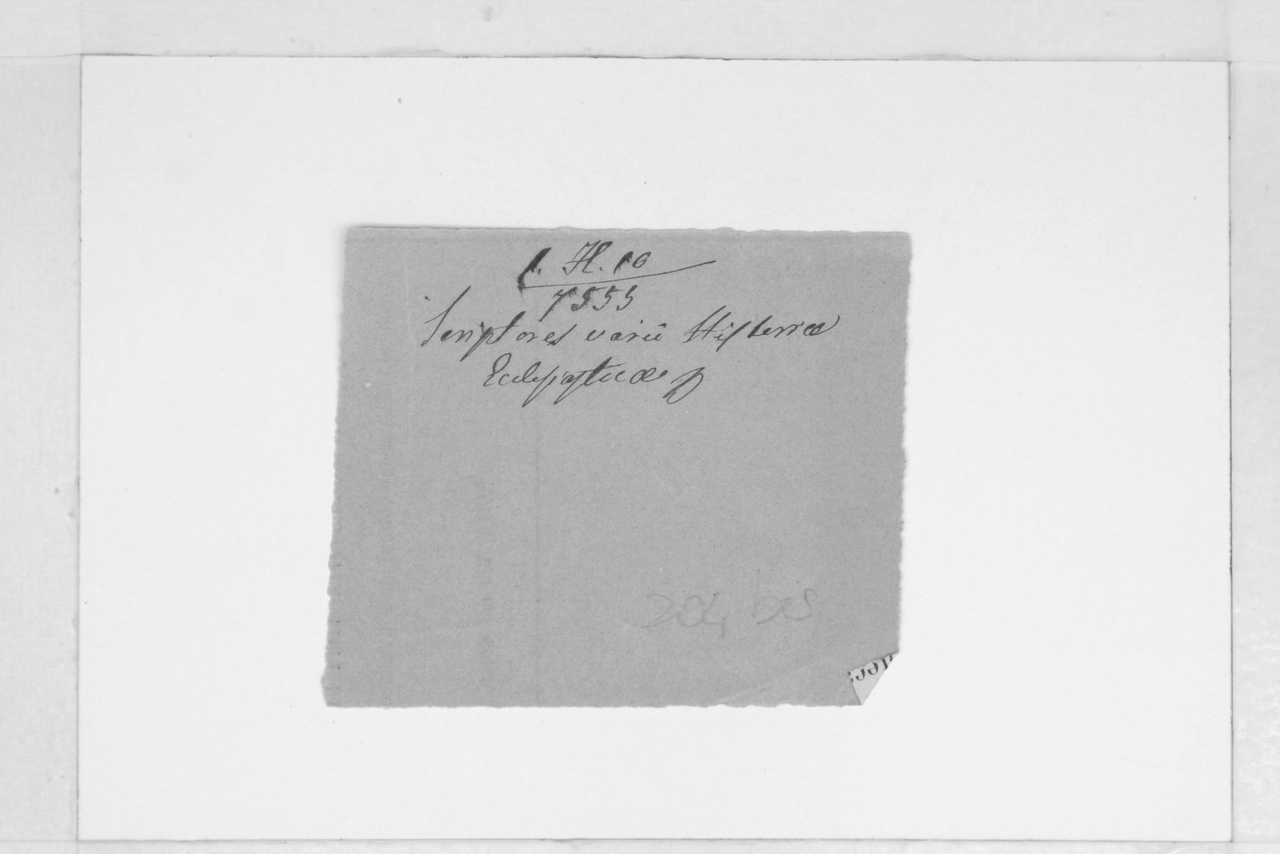 1. H. 10
7555
Scriptores varii Histeriæ
Eccleſiaſticæ
204 bis